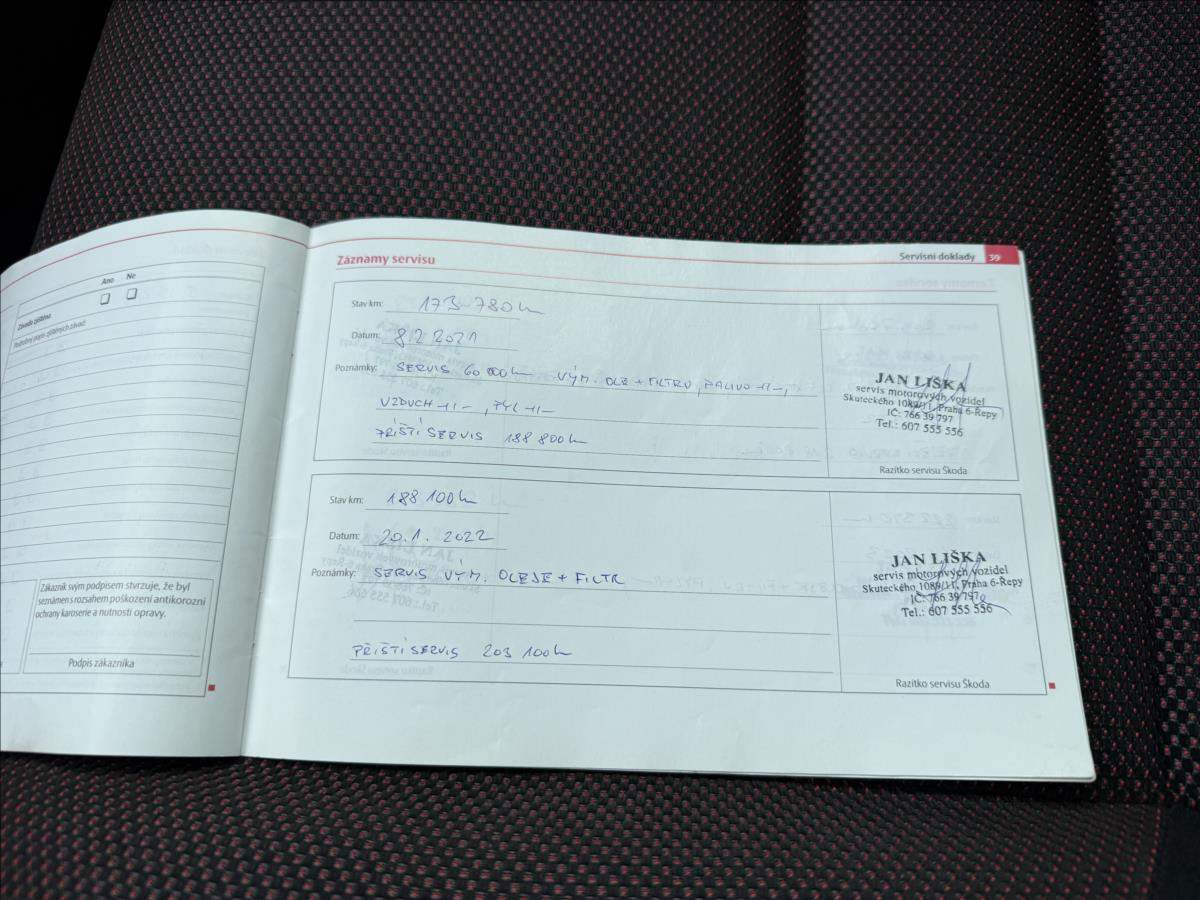 Ano Ne
Závada zjištěna
Podrobný popis zjištěných závad:
Zákazník svým podpisem stvrzuje, že byl
seznámen s rozsahem poškození antikorozní
ochrany karoserie a nutností opravy.
Podpis zákazníka
Záznamy servisu
Servisní doklady 39
Stav km: 173 780 km
Datum: 8 2 2021
Poznámky: SERVIS 60 000 km VÝM. OLE + FILTRU, PALIVO -11-,
VZDUCH -11-, PYL -11-
PŘÍŠTÍ SERVIS 188 800 km
JAN LIŠKA
servis motorových vozidel
Skuteckého 1089/11, Praha 6-Řepy
IČ: 766 39 797
Tel.: 607 555 556
Razítko servisu Škoda
Stav km: 188 100 km
Datum: 20.1. 2022
Poznámky: SERVIS VÝM. OLEJE + FILTR
PŘÍŠTÍ SERVIS 203 100 km
JAN LIŠKA
servis motorových vozidel
Skuteckého 1089/11, Praha 6-Řepy
IČ: 766 39 797
Tel.: 607 555 556
Razítko servisu Škoda